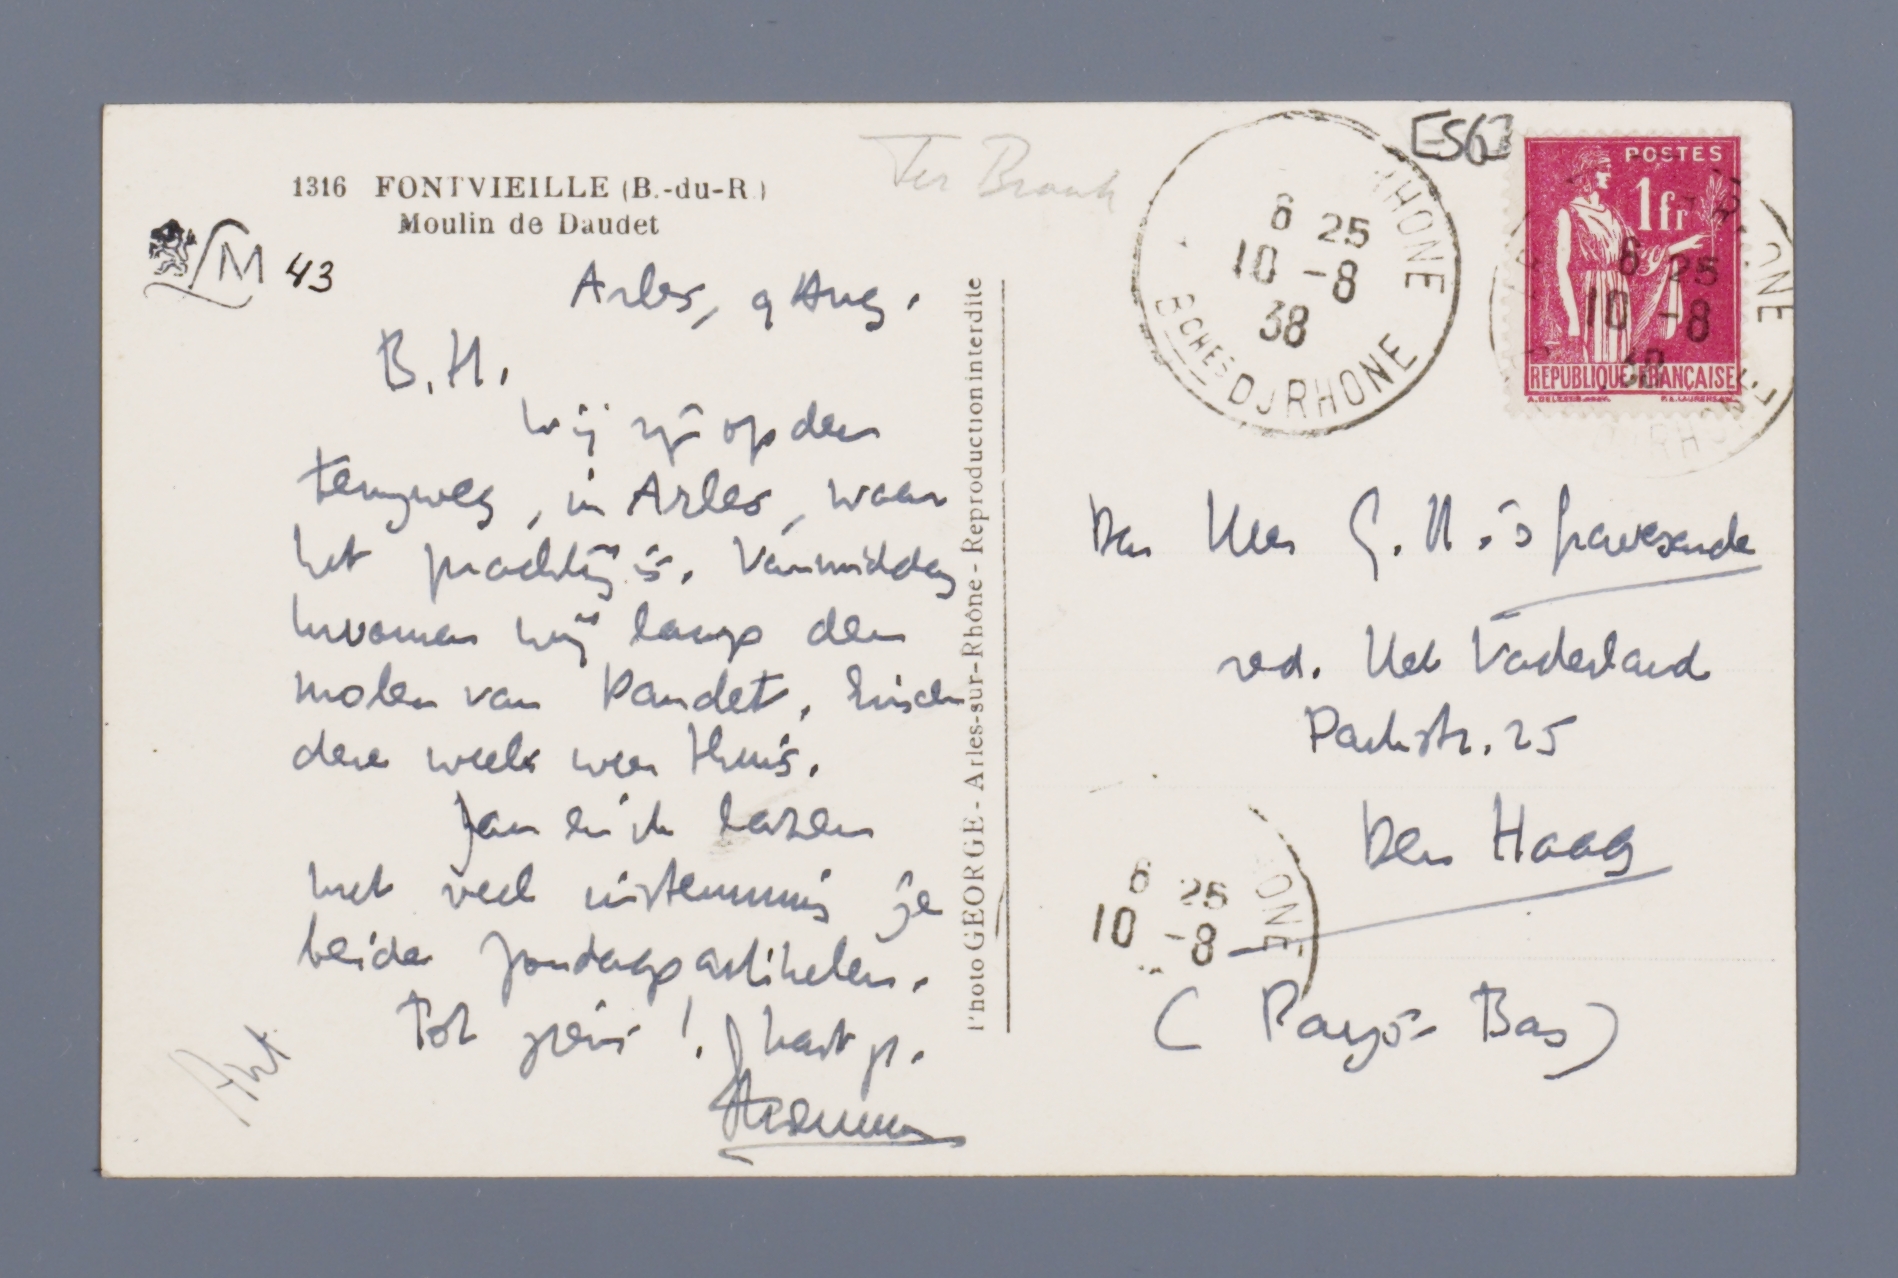 1316 FONTVIEILLE (B.-du-R.)
Moulin de Daudet
M 43
Ter Braak
Arles, 9 Aug.
B. H.
Wij zijn op den
terugweg, in Arles, waar
het prachtig is. Vanmiddag
kwamen wij langs den
molen van Daudet. Einde
dezer week weer thuis.
Jan en ik lazen
met veel instemming je
beide Zondagsartikelen.
Tot ziens! hart. gr.
Menno
Ant
Photo GEORGE - Arles-sur-Rhône - Reproduction interdite
RHONE
6 25
10 -8
38
BCHES DU RHONE
POSTES
1fr
REPUBLIQUE FRANÇAISE
6 25
10 -8
38
RHONE
DU RHONE
Den Heer G. H. 's Gravesande
red. Het Vaderland
Parkstr. 25
Den Haag
(Pays-Bas)
6 25
10 -8
RHONE